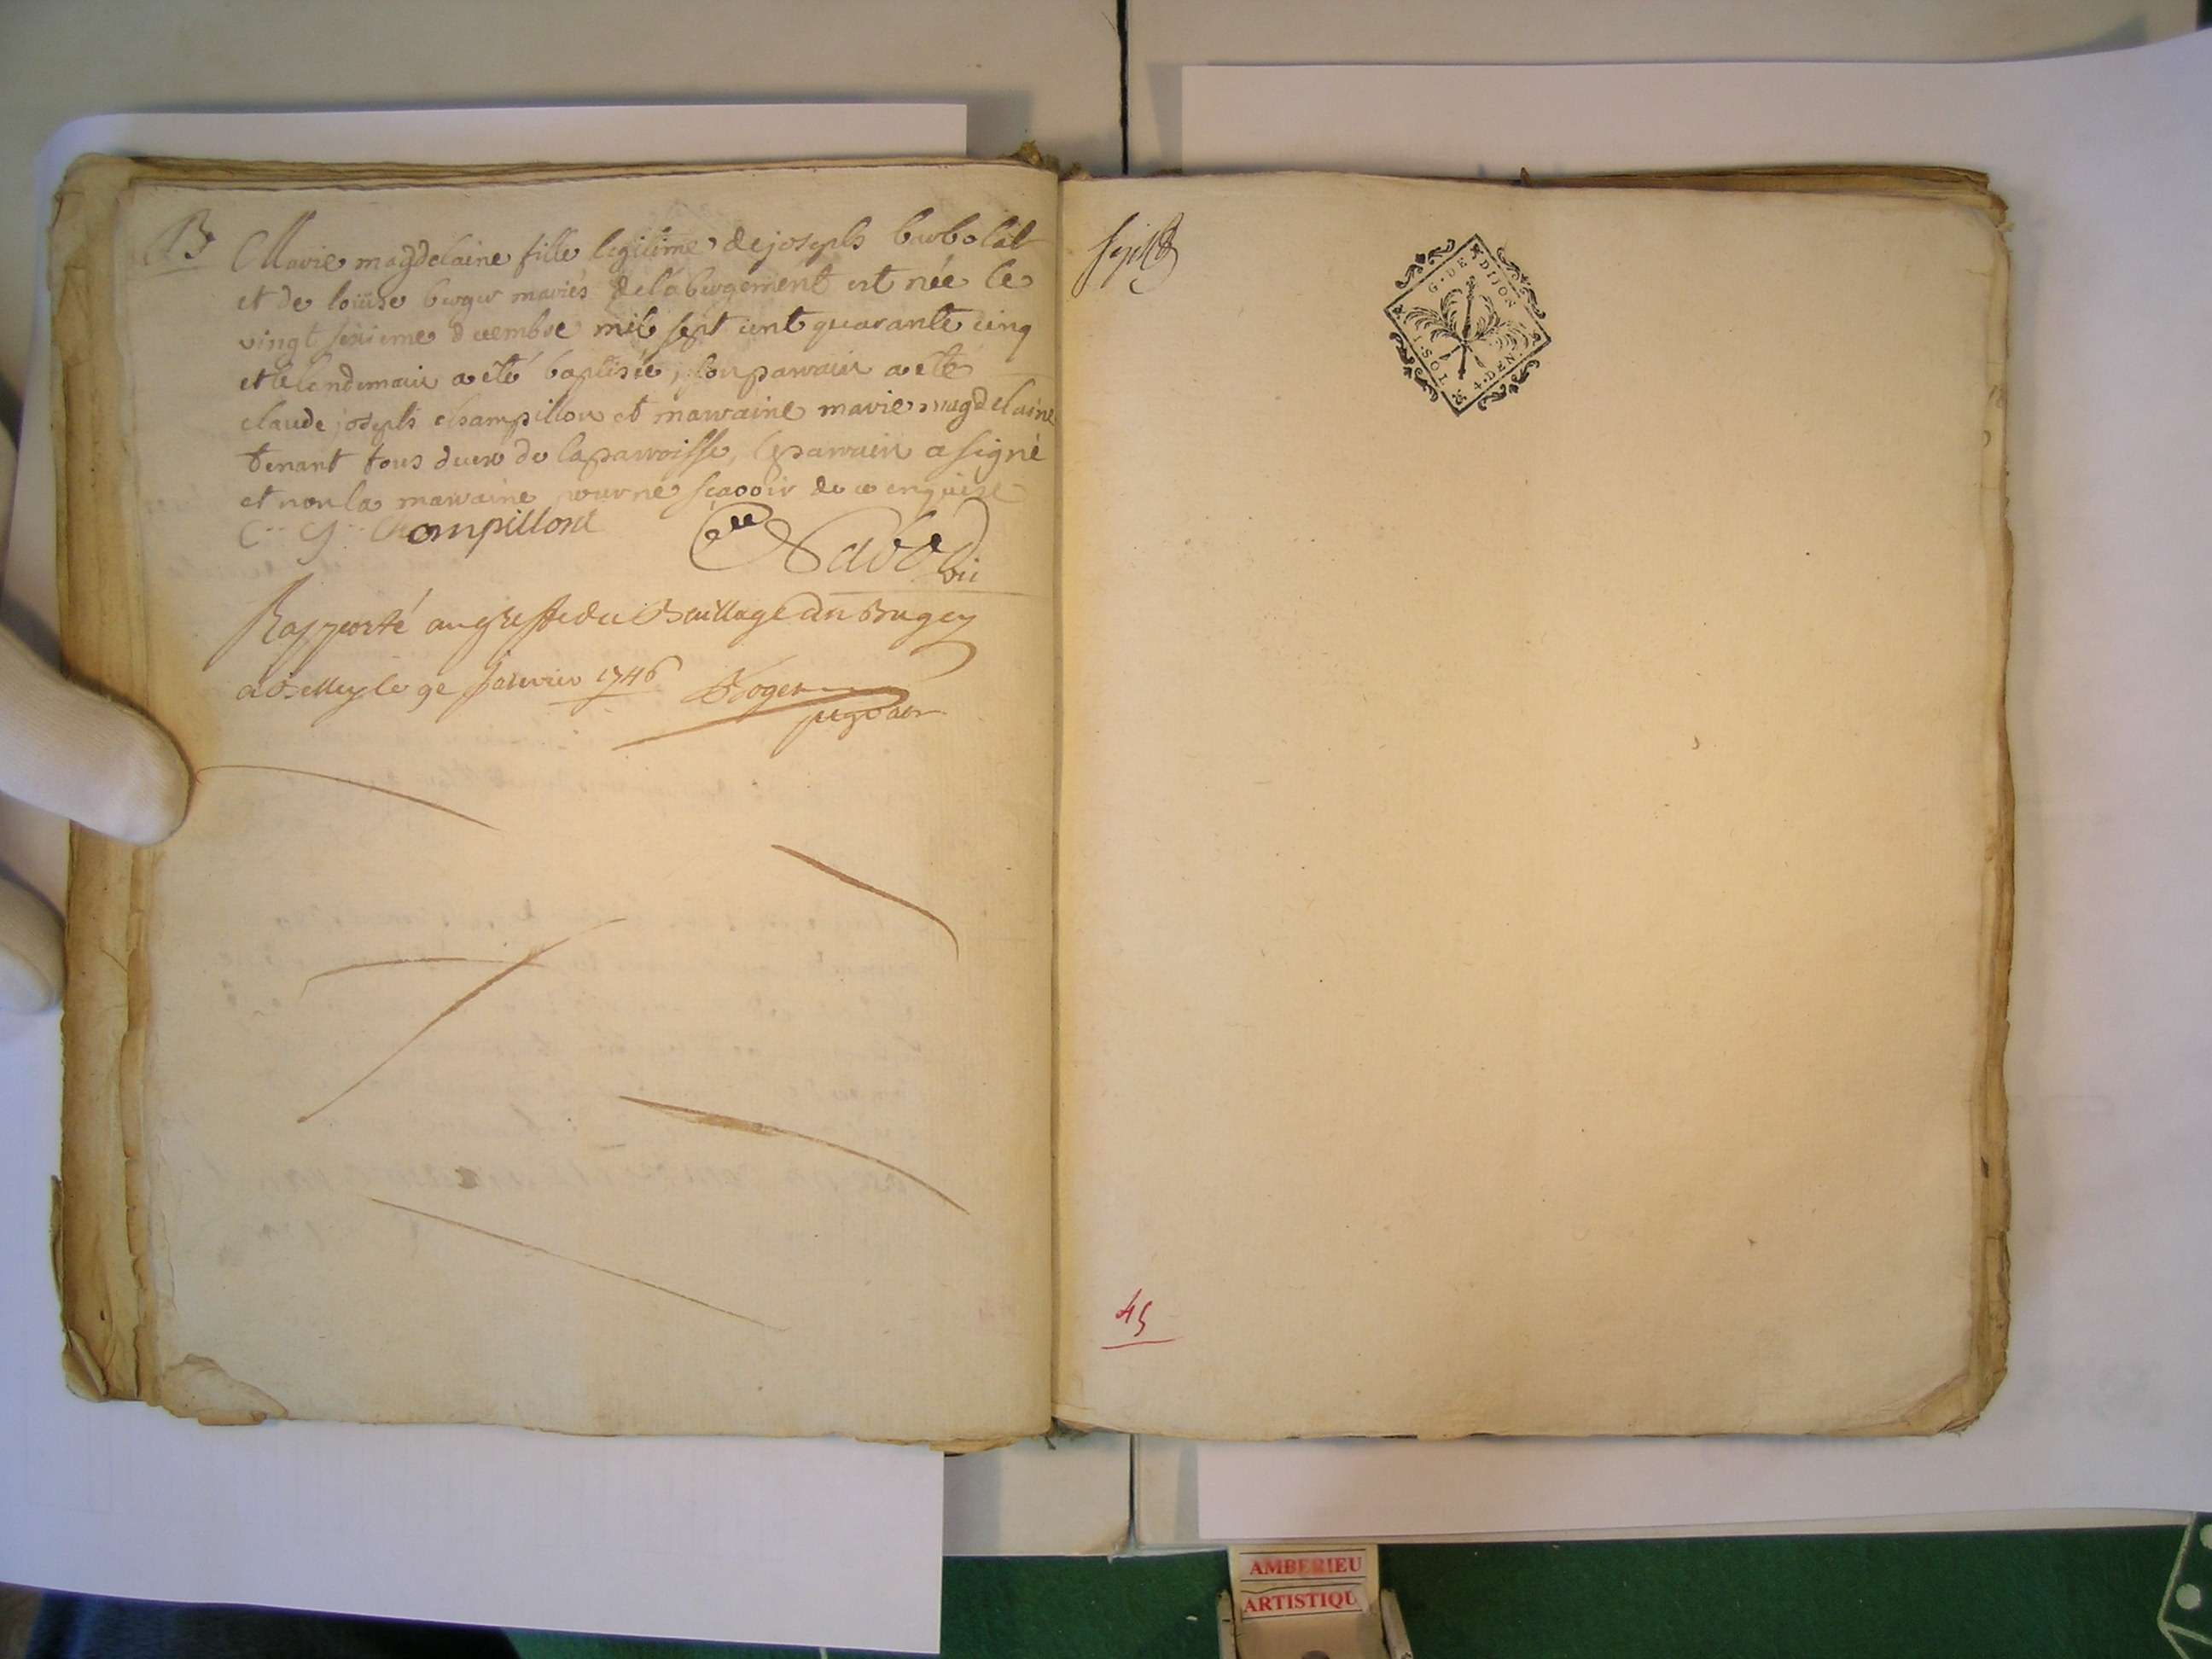 B
Marie magdelaine fille legitime de joseph barbolat
et de loüise burger mariés de l'abergement est née le
vingt sixieme decembre mil sept cent quarante cinq
et le lendemain a eté baptisée, son parrain a eté
claude joseph champillon et marraine marie magdelaine
tenant tous deux de la parroisse, le parrain a signé
et non la marraine pour ne sçavoir de ce enquise
C J Champillont
Rapporté au greffe du Bailliage du Bugey
a Belley le 9e Janvier 1746 Roger
G. DE DIJON
1. SOL. 4. DEN.
45
AMBERIEU
ARTISTIQU